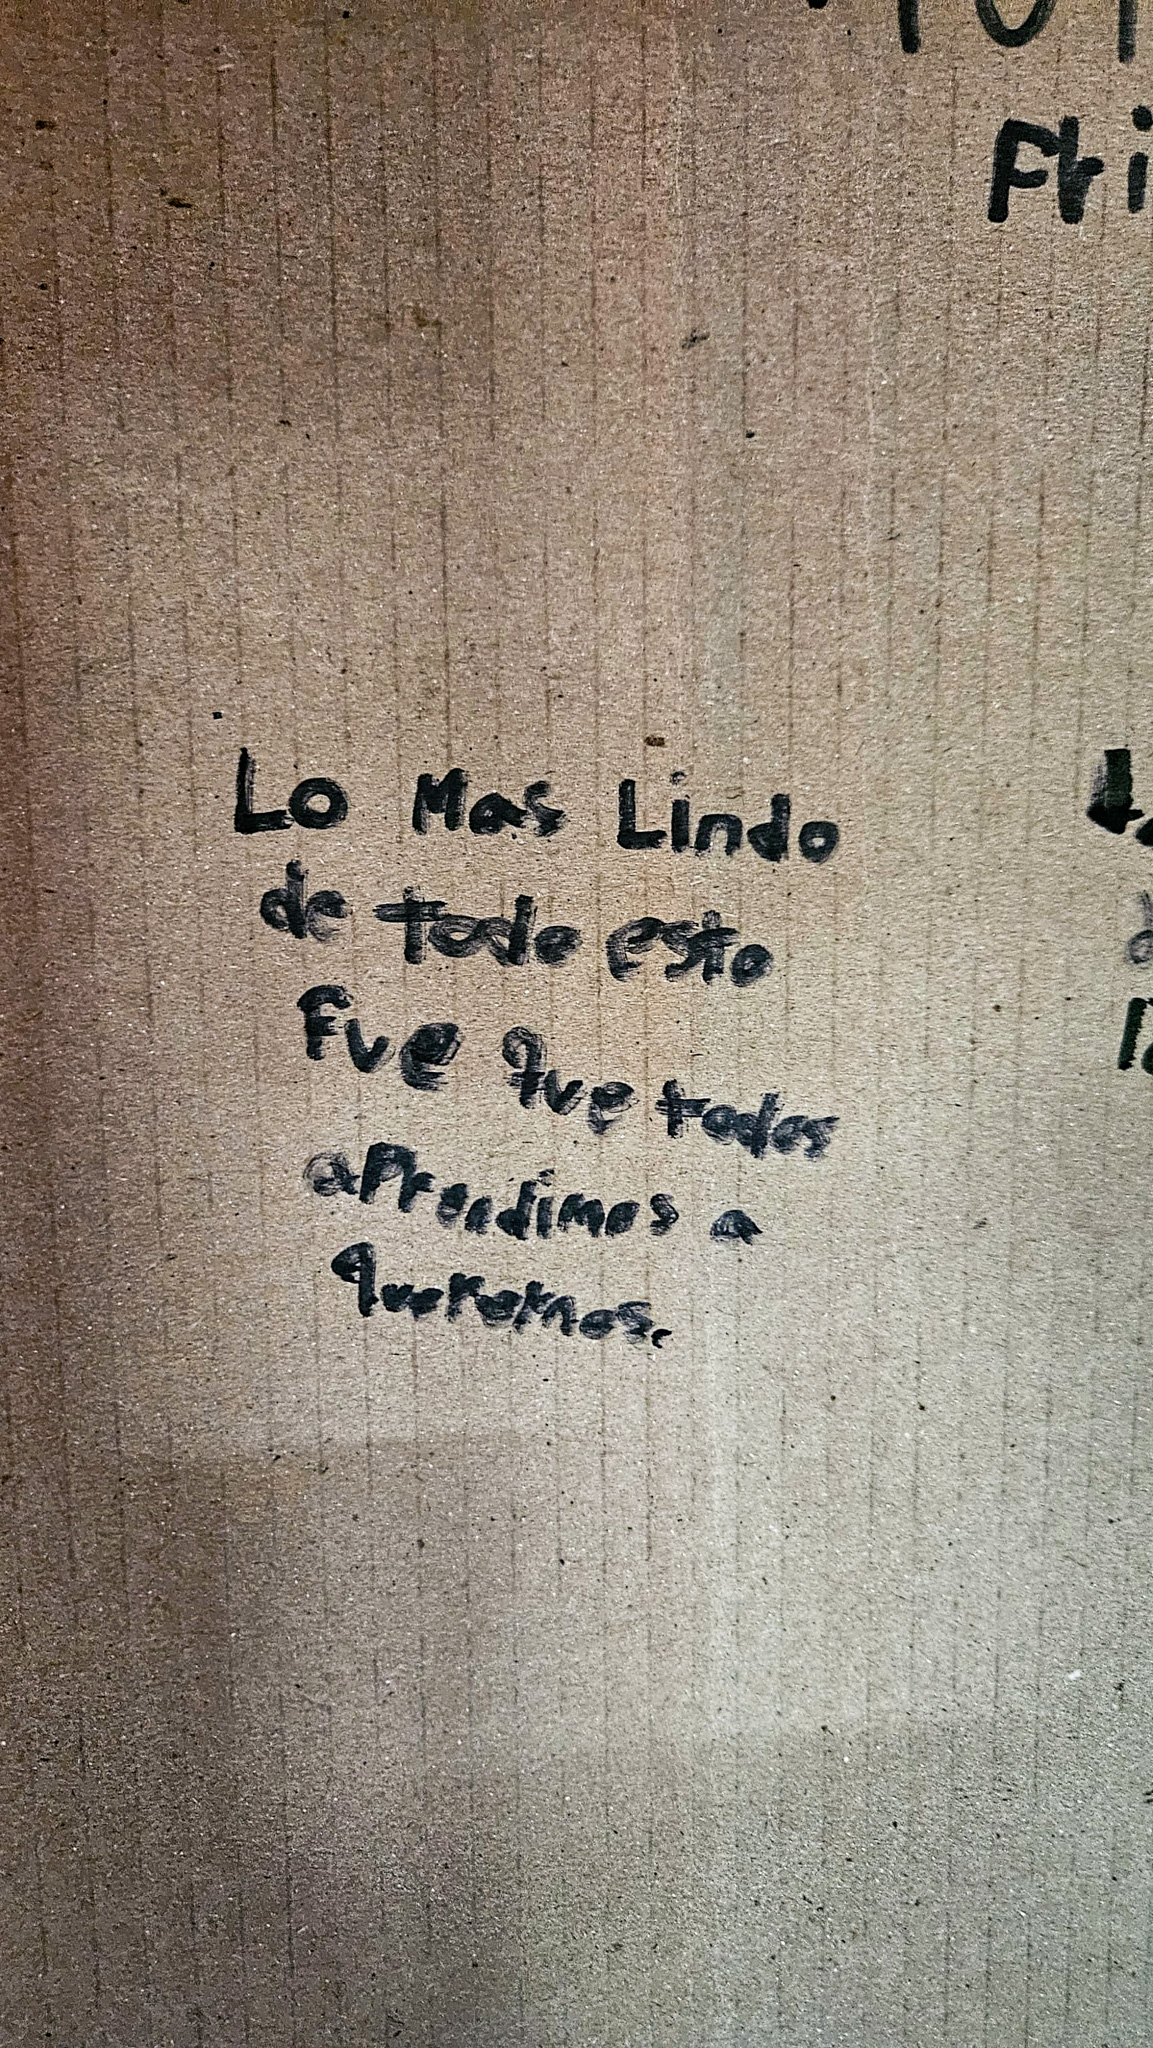 Fri
Lo Mas Lindo
de todo esto
Fue que todos
aprendimos a
querernos.